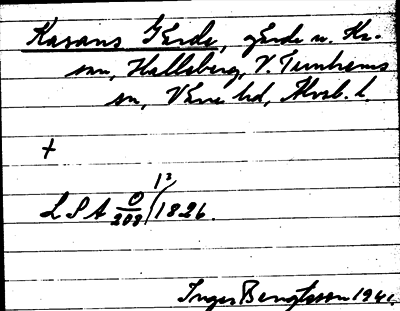 Kasans Gärde, gärde u. Ka-
san, Hallsberg, V. Tunhems
sn, Väne hd, Älvsb. l.
+
L S A O 13
208 1826.
Inger Bengtsson 1941.